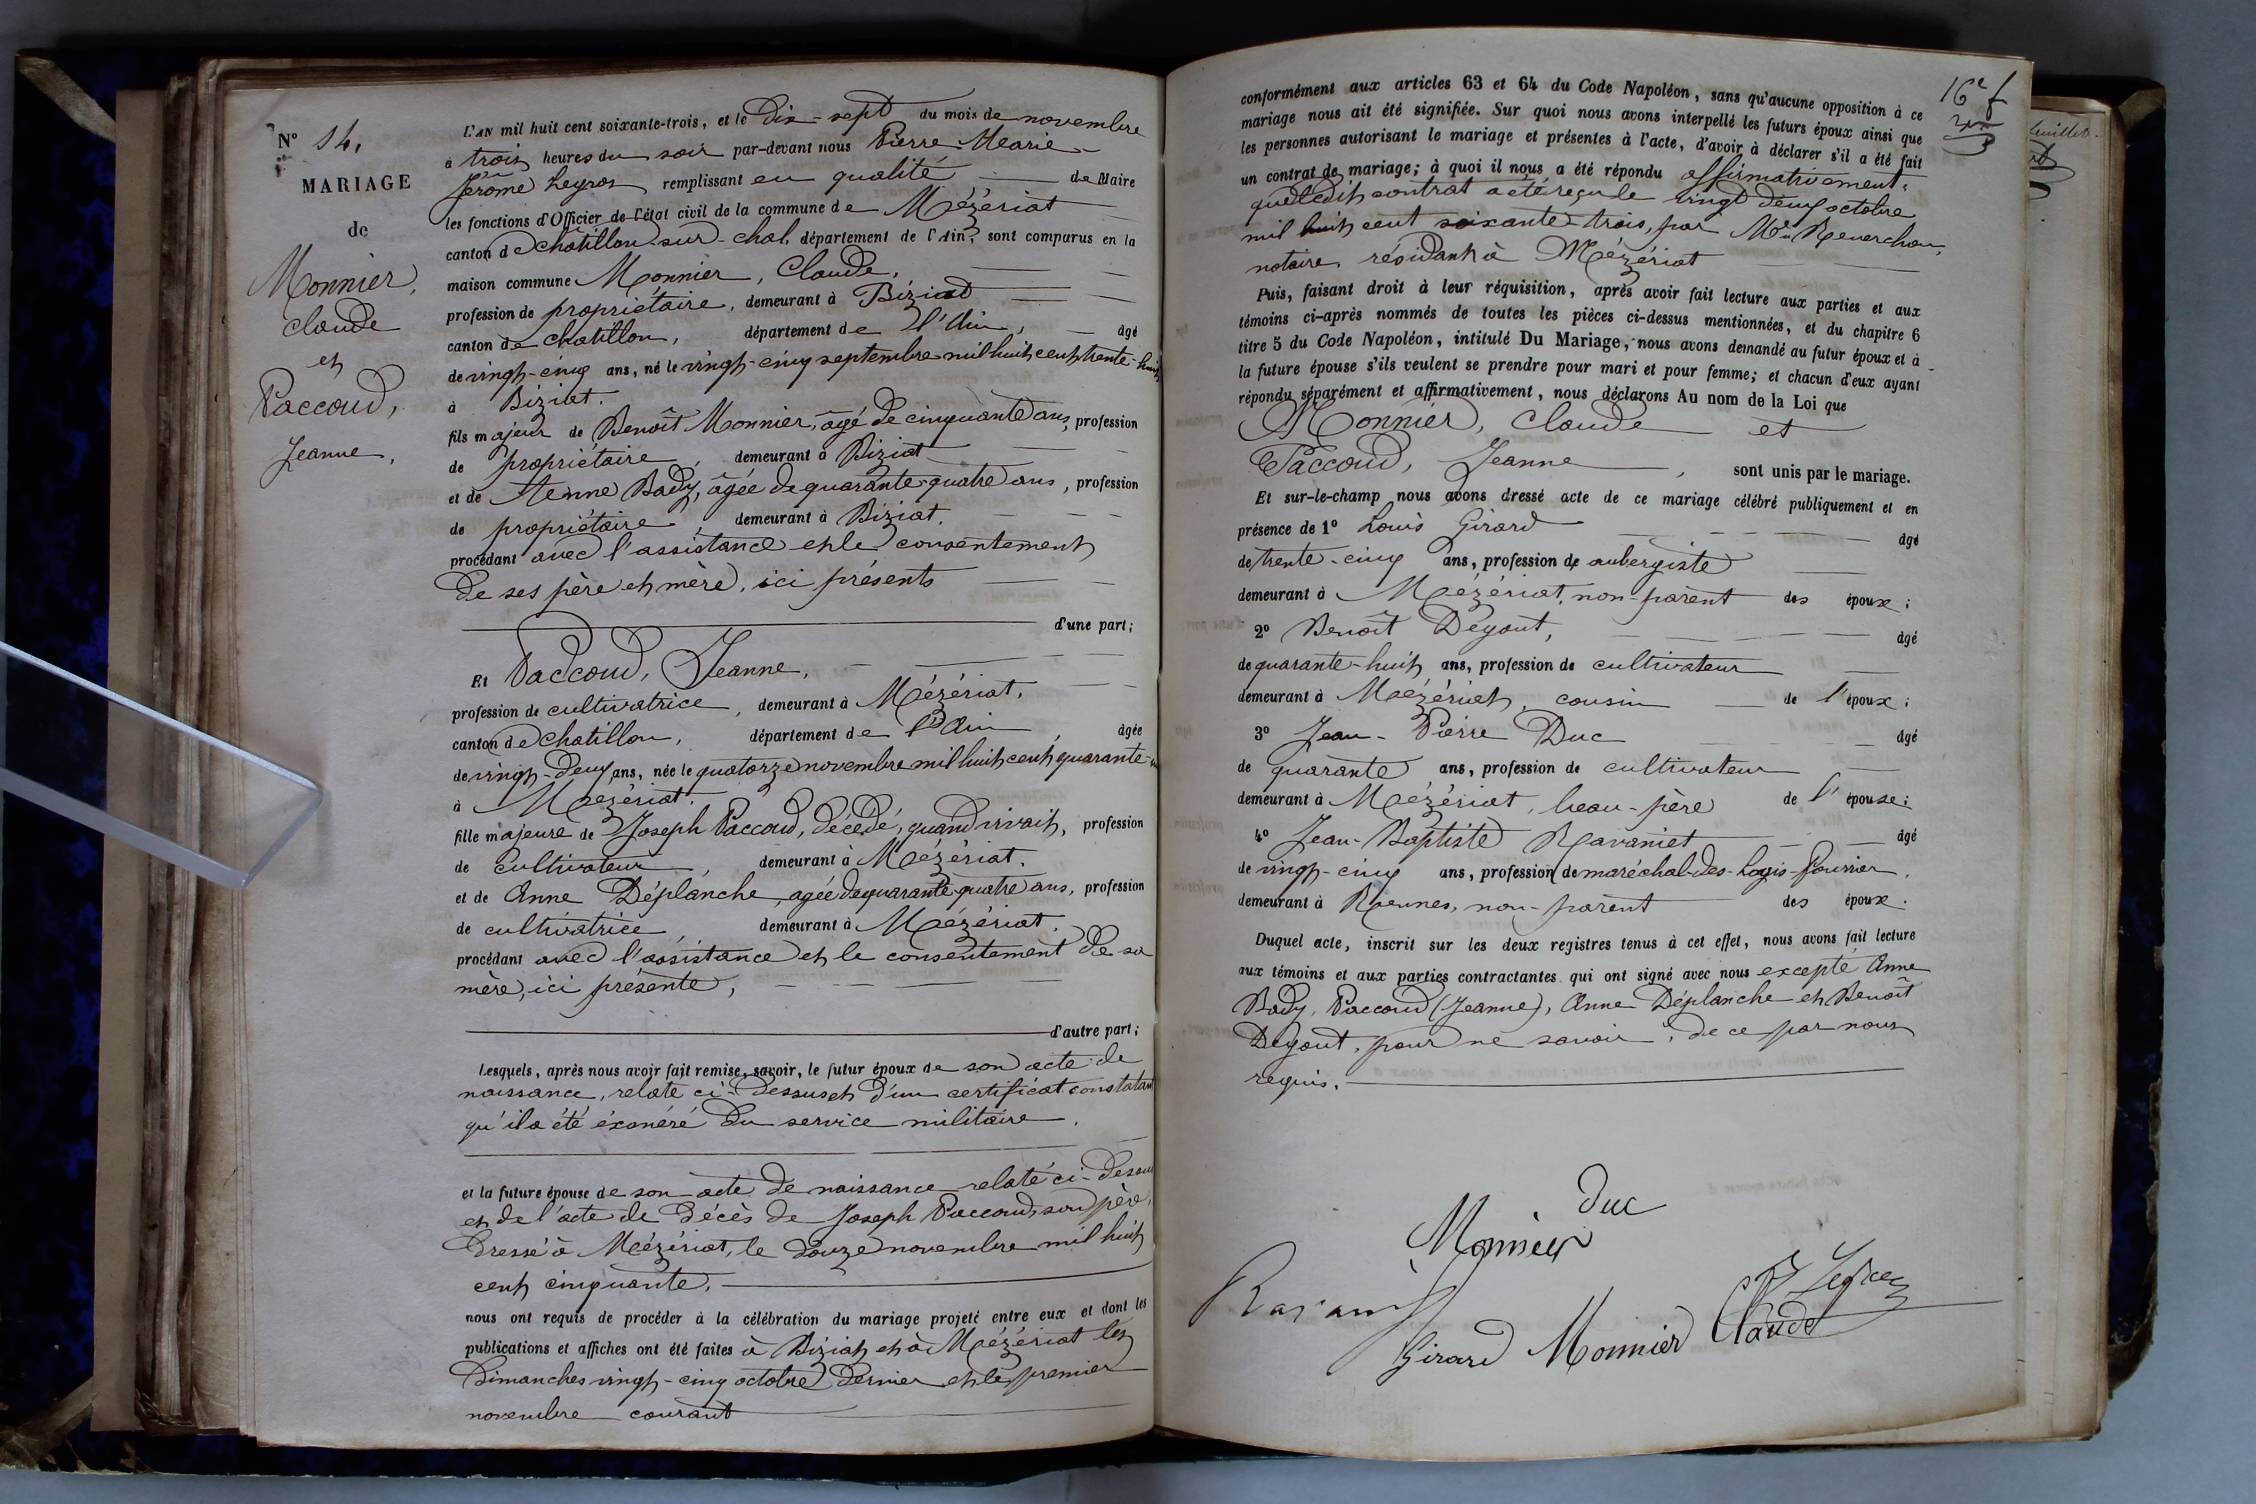 N° 14.
MARIAGE
de
Monnier,
Claude
et
Paccoud,
Jeanne,
L'AN mil huit cent soixante-trois, et le dix-sept du mois de novembre
à trois heures du soir par-devant nous Pierre Marie
Jérôme remplissant en qualité de Maire
les fonctions d'Officier de l'état civil de la commune de Mézériat
canton de Chatillon-sur-Chal. département de l'Ain, sont comparus en la
maison commune Monnier, Claude,
profession de propriétaire, demeurant à Biziat
canton de Chatillon, département de l'Ain, âgé
de vingt-cinq ans, né le vingt-cinq septembre mil huit cent trente-huit
à Biziat.
fils majeur de Benoît Monnier, âgé de cinquante ans, profession
de propriétaire, demeurant à Biziat
et de Anne Bady, âgée de quarante-quatre ans, profession
de propriétaire, demeurant à Biziat.
procédant avec l'assistance et le consentement
de ses père et mère, ici présents
d'une part;
Et Paccoud, Jeanne,
profession de cultivatrice, demeurant à Mézériat,
canton de Chatillon, département de l'Ain, âgée
de vingt-deux ans, née le quatorze novembre mil huit cent quarante-un
à Mézériat.
fille majeure de Joseph Paccoud, décédé, quand vivait, profession
de cultivateur demeurant à Mézériat.
et de Anne Déplanche, agée de quarante-quatre ans, profession
de cultivatrice, demeurant à Mézériat.
procédant avec l'assistance et le consentement de sa
mère, ici présente,
d'autre part;
Lesquels, après nous avoir fait remise, savoir, le futur époux de son acte de
naissance, relaté ci-dessus et d'un certificat constatant
qu'il a été éxonéré du service militaire.
et la future épouse de son acte de naissance relaté ci-dessus
et de l'acte de décès de Joseph Paccoud, son père,
dressé à Mézériat, le douze novembre mil huit
cent cinquante.
nous ont requis de procéder à la célébration du mariage projeté entre eux et dont les
publications et affiches ont été faites à Biziat et à Mézériat les
dimanches vingt-cinq octobre dernier et le premier
novembre courant
16e f
conformément aux articles 63 et 64 du Code Napoléon, sans qu'aucune opposition à ce
mariage nous ait été signifiée. Sur quoi nous avons interpellé les futurs époux ainsi que
les personnes autorisant le mariage et présentes à l'acte, d'avoir à déclarer s'il a été fait
un contrat de mariage; à quoi il nous a été répondu affirmativement,
que ledit contrat a été reçu le vingt deux octobre
mil huit cent soixante-trois, par Me Reverchon,
notaire, résidant à Mézériat
Puis, faisant droit à leur réquisition, après avoir fait lecture aux parties et aux
témoins ci-après nommés de toutes les pièces ci-dessus mentionnées, et du chapitre 6
titre 5 du Code Napoléon, intitulé Du Mariage, nous avons demandé au futur époux et à
la future épouse s'ils veulent se prendre pour mari et pour femme; et chacun d'eux ayant
répondu séparément et affirmativement, nous déclarons Au nom de la Loi que
Monnier, Claude et
Paccoud, Jeanne, sont unis par le mariage.
Et sur-le-champ nous avons dressé acte de ce mariage célébré publiquement et en
présence de 1° Louis Girard âgé
de trente-cinq ans, profession de aubergiste
demeurant à Mézériat, non-parent des époux;
2° Benoît Degout, âgé
de quarante-huit ans, profession de cultivateur
demeurant à Mézériat, cousin de l'époux;
3° Jean-Pierre Duc âgé
de quarante ans, profession de cultivateur
demeurant à Mézériat, beau-père de l'épouse;
4° Jean-Baptiste Ravaniet âgé
de vingt-cinq ans, profession de maréchal-des-Logis-fourrier,
demeurant à Rennes, non-parent des époux.
Duquel acte, inscrit sur les deux registres tenus à cet effet, nous avons fait lecture
aux témoins et aux parties contractantes qui ont signé avec nous excepté Anne
Bady, Paccoud (Jeanne), Anne Déplanche et Benoît
Degout, pour ne savoir, de ce par nous
requis.
Duc
Monnier
Girard Monnier Claude